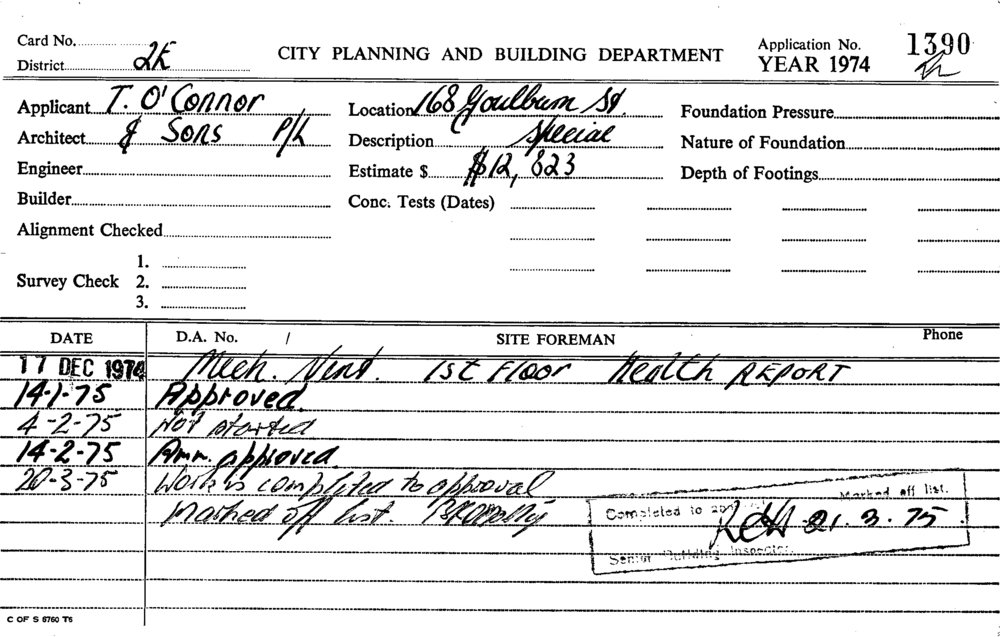 Card No.
District 2E
CITY PLANNING AND BUILDING DEPARTMENT
Application No. 1390
YEAR 1974
Applicant T. O'Connor
Architect & Sons P/L
Engineer
Builder
Alignment Checked
Survey Check 1.
2.
3.
Location 168 Goulburn St.
Description Special
Estimate $ $12,823
Conc. Tests (Dates)
Foundation Pressure
Nature of Foundation
Depth of Footings
DATE D.A. No. / SITE FOREMAN Phone
17 DEC 1974 Mech. Vent. 1st Floor Health REPORT
14-1-75 Approved
4-2-75 Not started
14-2-75 Amm. approved
20-3-75 Work is completed to approval
Marked off list.
Marked off list.
Completed to
21.3.75
Senior Building Inspector
C OF S 6760 T6